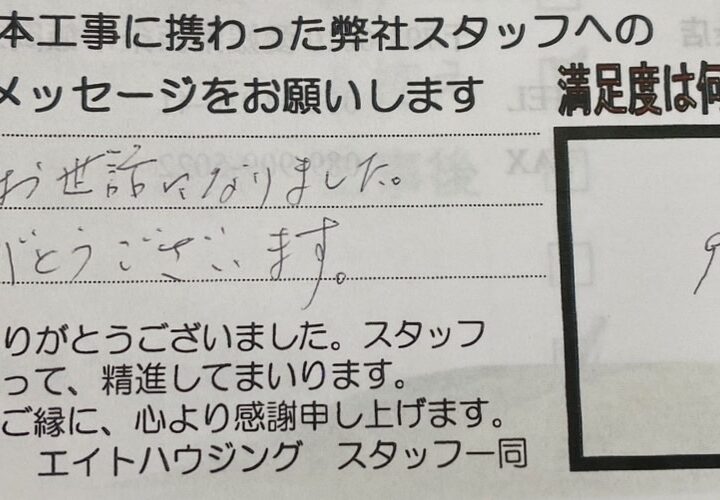 本工事に携わった弊社スタッフへの
メッセージをお願いします
満足度は何
お世話になりました。
がとうございます。
りがとうございました。スタッフ
って、精進してまいります。
ご縁に、心より感謝申し上げます。
エイトハウジング スタッフ一同